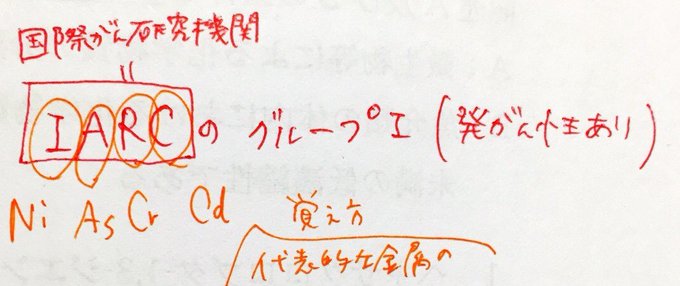 国際がん研究機関
||
IARCのグループI(発がん性あり)
Ni As Cr Cd 覚え方
代表的な金属の